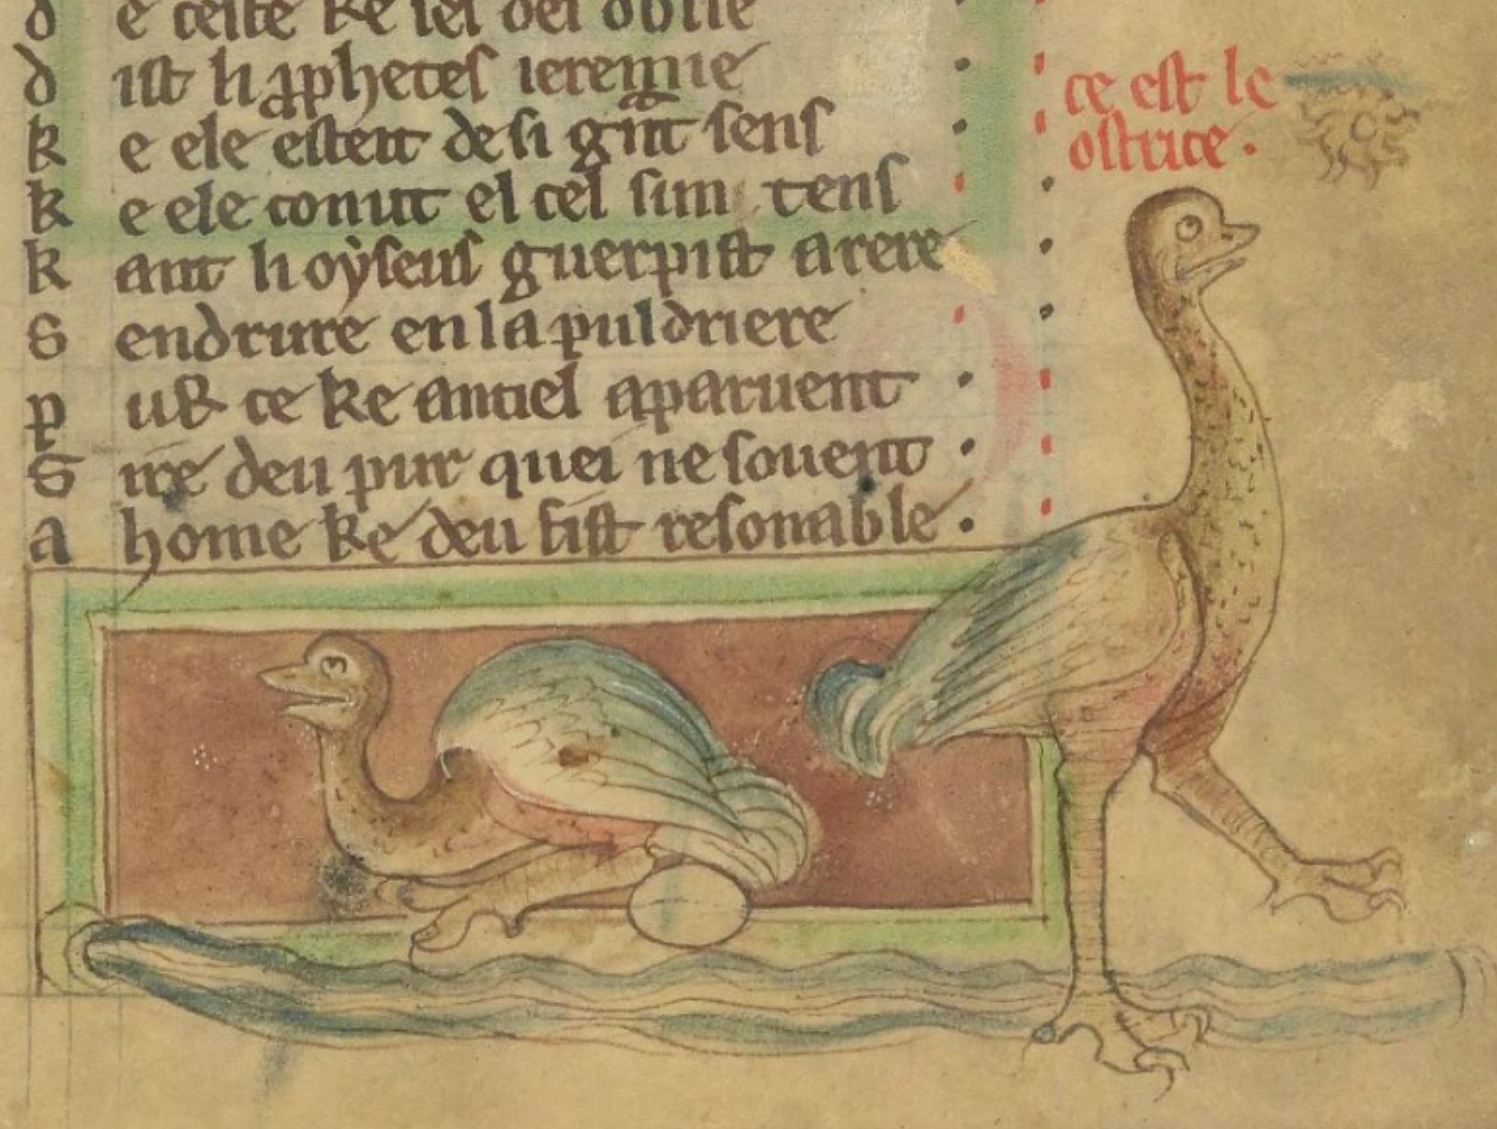 d ist li aphetes ieremie
k e ele esteit de si gnt sens
k e ele conut el cel sun tens
k ant li oyseus guerpist arere
s endrure en la puldriere
p u& ce ke anciel aparuent
s ire deu pur quei ne souent
a home ke deu fist resonable.
ce est le
ostrice.